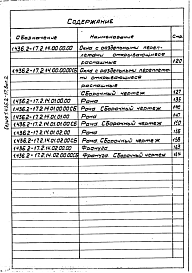 СОДЕРЖАНИЕ
Обозначение Наименование Стр.
1.436.2-17.2 14.00.00.00 Окна с раздельными переплетами открывающиеся
распашные 120
1.436.2-17.2 14.00.00.00СБ Окна с раздельными переплетами открывающиеся
распашные
Сборочный чертеж 127
1.436.2-17.2 14.01.00.00 Рама 135
1.436.2-17.2 14.01.00.00СБ Рама Сборочный чертеж
1.436.2-17.2 14.01.01.00 Рама
1.436.2-17.2 14.01.01.00СБ Рама Сборочный чертеж 150
1.436.2-17.2 14.01.02.00 Рама
1.436.2-17.2 14.01.02.00СБ Рама Сборочный чертеж 158
1.436.2-17.2 14.02.00.00 Фрамуга
1.436.2-17.2 14.02.00.00СБ Фрамуга Сборочный чертеж